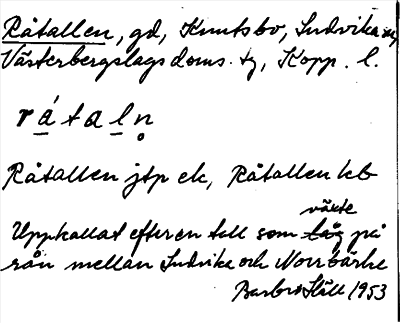 Råtallen, gd, Knutsbo, Ludvika
Västerbergslags doms. tg, Kopp. l.
rátaln̥
Råtallen jtp ek, Råtallen kb
växte
Uppkallat efter en tall som låg på
rån mellan Ludvika och Norrbärke
Barbro Häll 1953